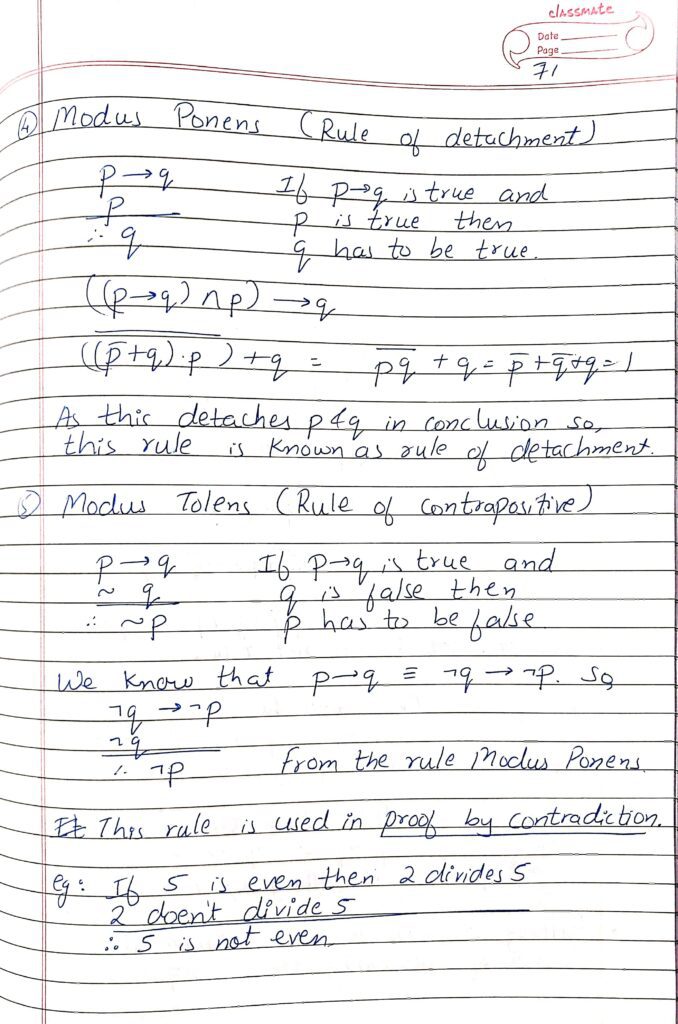 classmate
Date
Page
71
④ Modus Ponens (Rule of detachment)
p→q If p→q is true and
p p is true then
∴ q q has to be true.
((p→q) ∩ p) → q
(\overline{(p̅+q)·p}) + q = \overline{pq} + q = p̅+q̅+q = 1
As this detaches p & q in conclusion so,
this rule is known as rule of detachment.
⑤ Modus Tolens (Rule of contrapositive)
p→q If p→q is true and
~ q q is false then
∴ ~p p has to be false
We know that p→q ≡ ¬q→¬p. so
¬q → ¬p
¬q
∴ ¬p from the rule Modus Ponens.
This rule is used in proof by contradiction.
eg: If 5 is even then 2 divides 5
2 doen't divide 5
∴ 5 is not even.